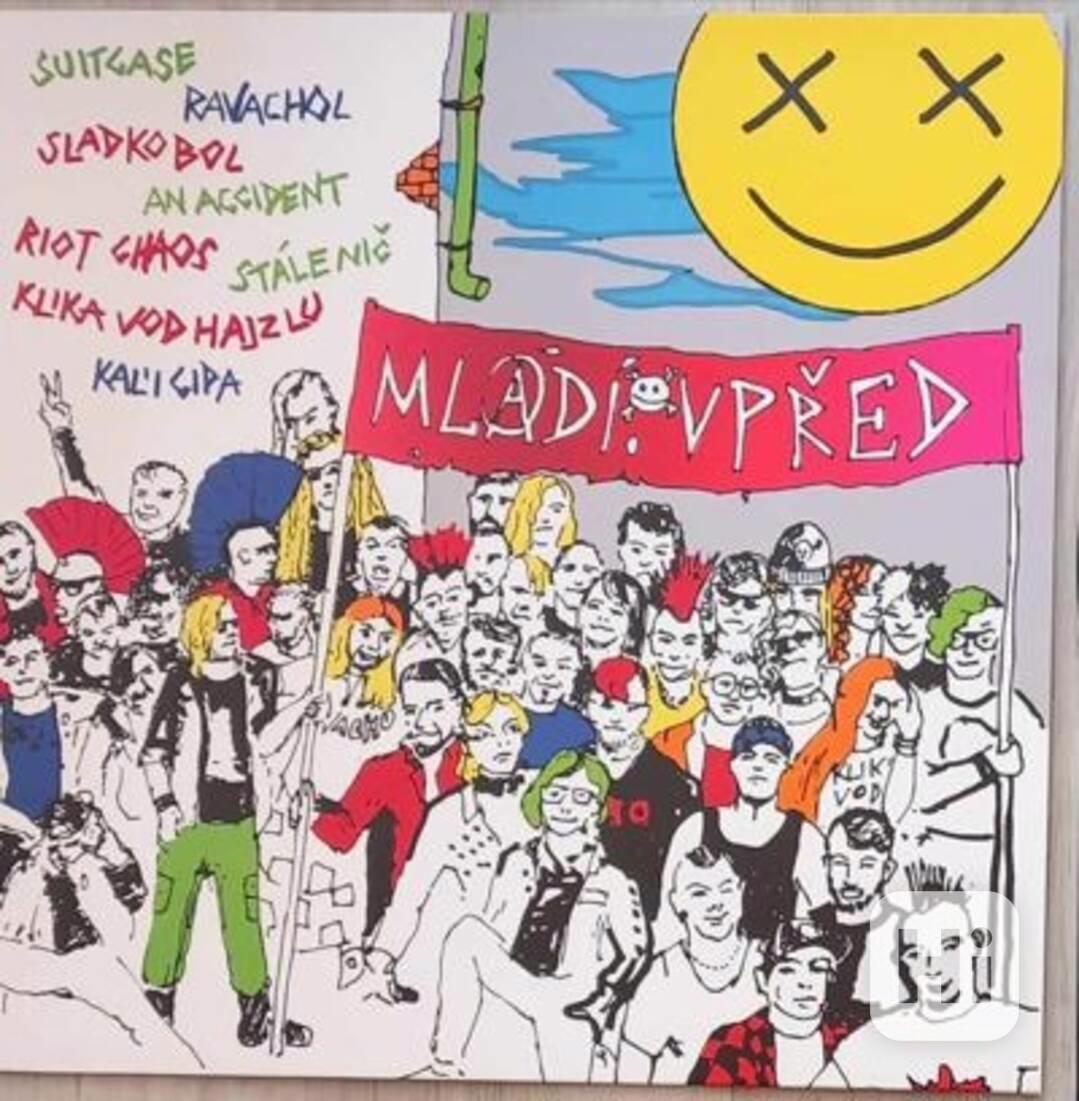 SUITCASE
RAVACHOL
SLADKOBOL
AN ACCIDENT
RIOT CHAOS
STÁLE NIČ
KLIKA VOD HAJZLU
KAL'I GIPA
MLADÍ VPŘED
KLIK
VOD